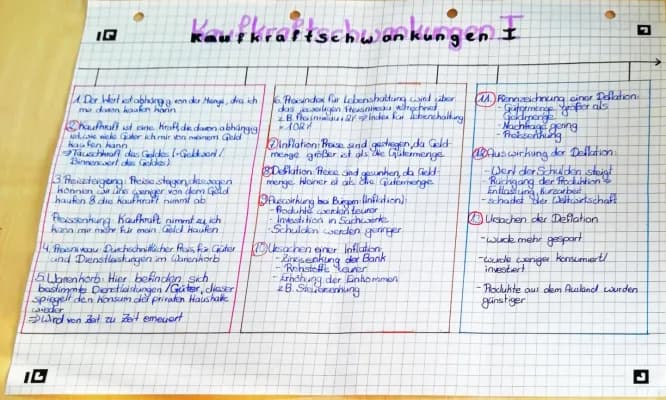 Kaufkraftschwankungen I
1. Der Wert ist abhängig von der Menge, die ich
mir davon kaufen kann
2. Kaufkraft ist eine Kraft, die davon abhängig
ist, wie viele Güter ich mir von meinem Geld
kaufen kann
⇒ Tauschkraft des Geldes (=Geldwert/
Binnenwert des Geldes)
3. Preissteigerung: Preise steigen, deswegen
können wir uns weniger von dem Geld
kaufen & die Kaufkraft nimmt ab
Preissenkung: Kaufkraft nimmt zu, ich
kann mir mehr für mein Geld kaufen
4. Preisniveau: Durchschnittlicher Preis für Güter
und Dienstleistungen im Warenkorb
5. Warenkorb: Hier befinden sich
bestimmte Dienstleistungen/Güter, dieser
spiegelt den Konsum der privaten Haushalte
wieder
⇒ Wird von Zeit zu Zeit erneuert
6. Preisindex für Lebenshaltung wird über
das jeweilige Preisniveau
z.B. Preisniveau ⇒ Index für Lebenshaltung
7. Inflation: Preise sind gestiegen, da Geld-
menge größer ist als die Gütermenge
8. Deflation: Preise sind gesunken, da Geld-
menge kleiner ist als die Gütermenge
9. Auswirkung bei Bürgern (Inflation):
- Produkte werden teurer
- Investition in Sachwerte
- Schulden werden geringer
10. Ursachen einer Inflation:
- Zinssenkung der Bank
- Rohstoffe teurer
- Erhöhung der Einkommen
z.B. Steuersenkung
11. Kennzeichnung einer Deflation:
- Gütermenge größer als
Geldmenge
- Nachfrage gering
- Preissenkung
12. Auswirkung der Deflation:
- Wert der Schulden steigt
- Rückgang der Produktion ⇒
Entlassung, Kurzarbeit
- schadet der Weltwirtschaft
Ursachen der Deflation
- wurde mehr gespart
- wurde weniger konsumiert/
investiert
- Produkte aus dem Ausland wurden
günstiger